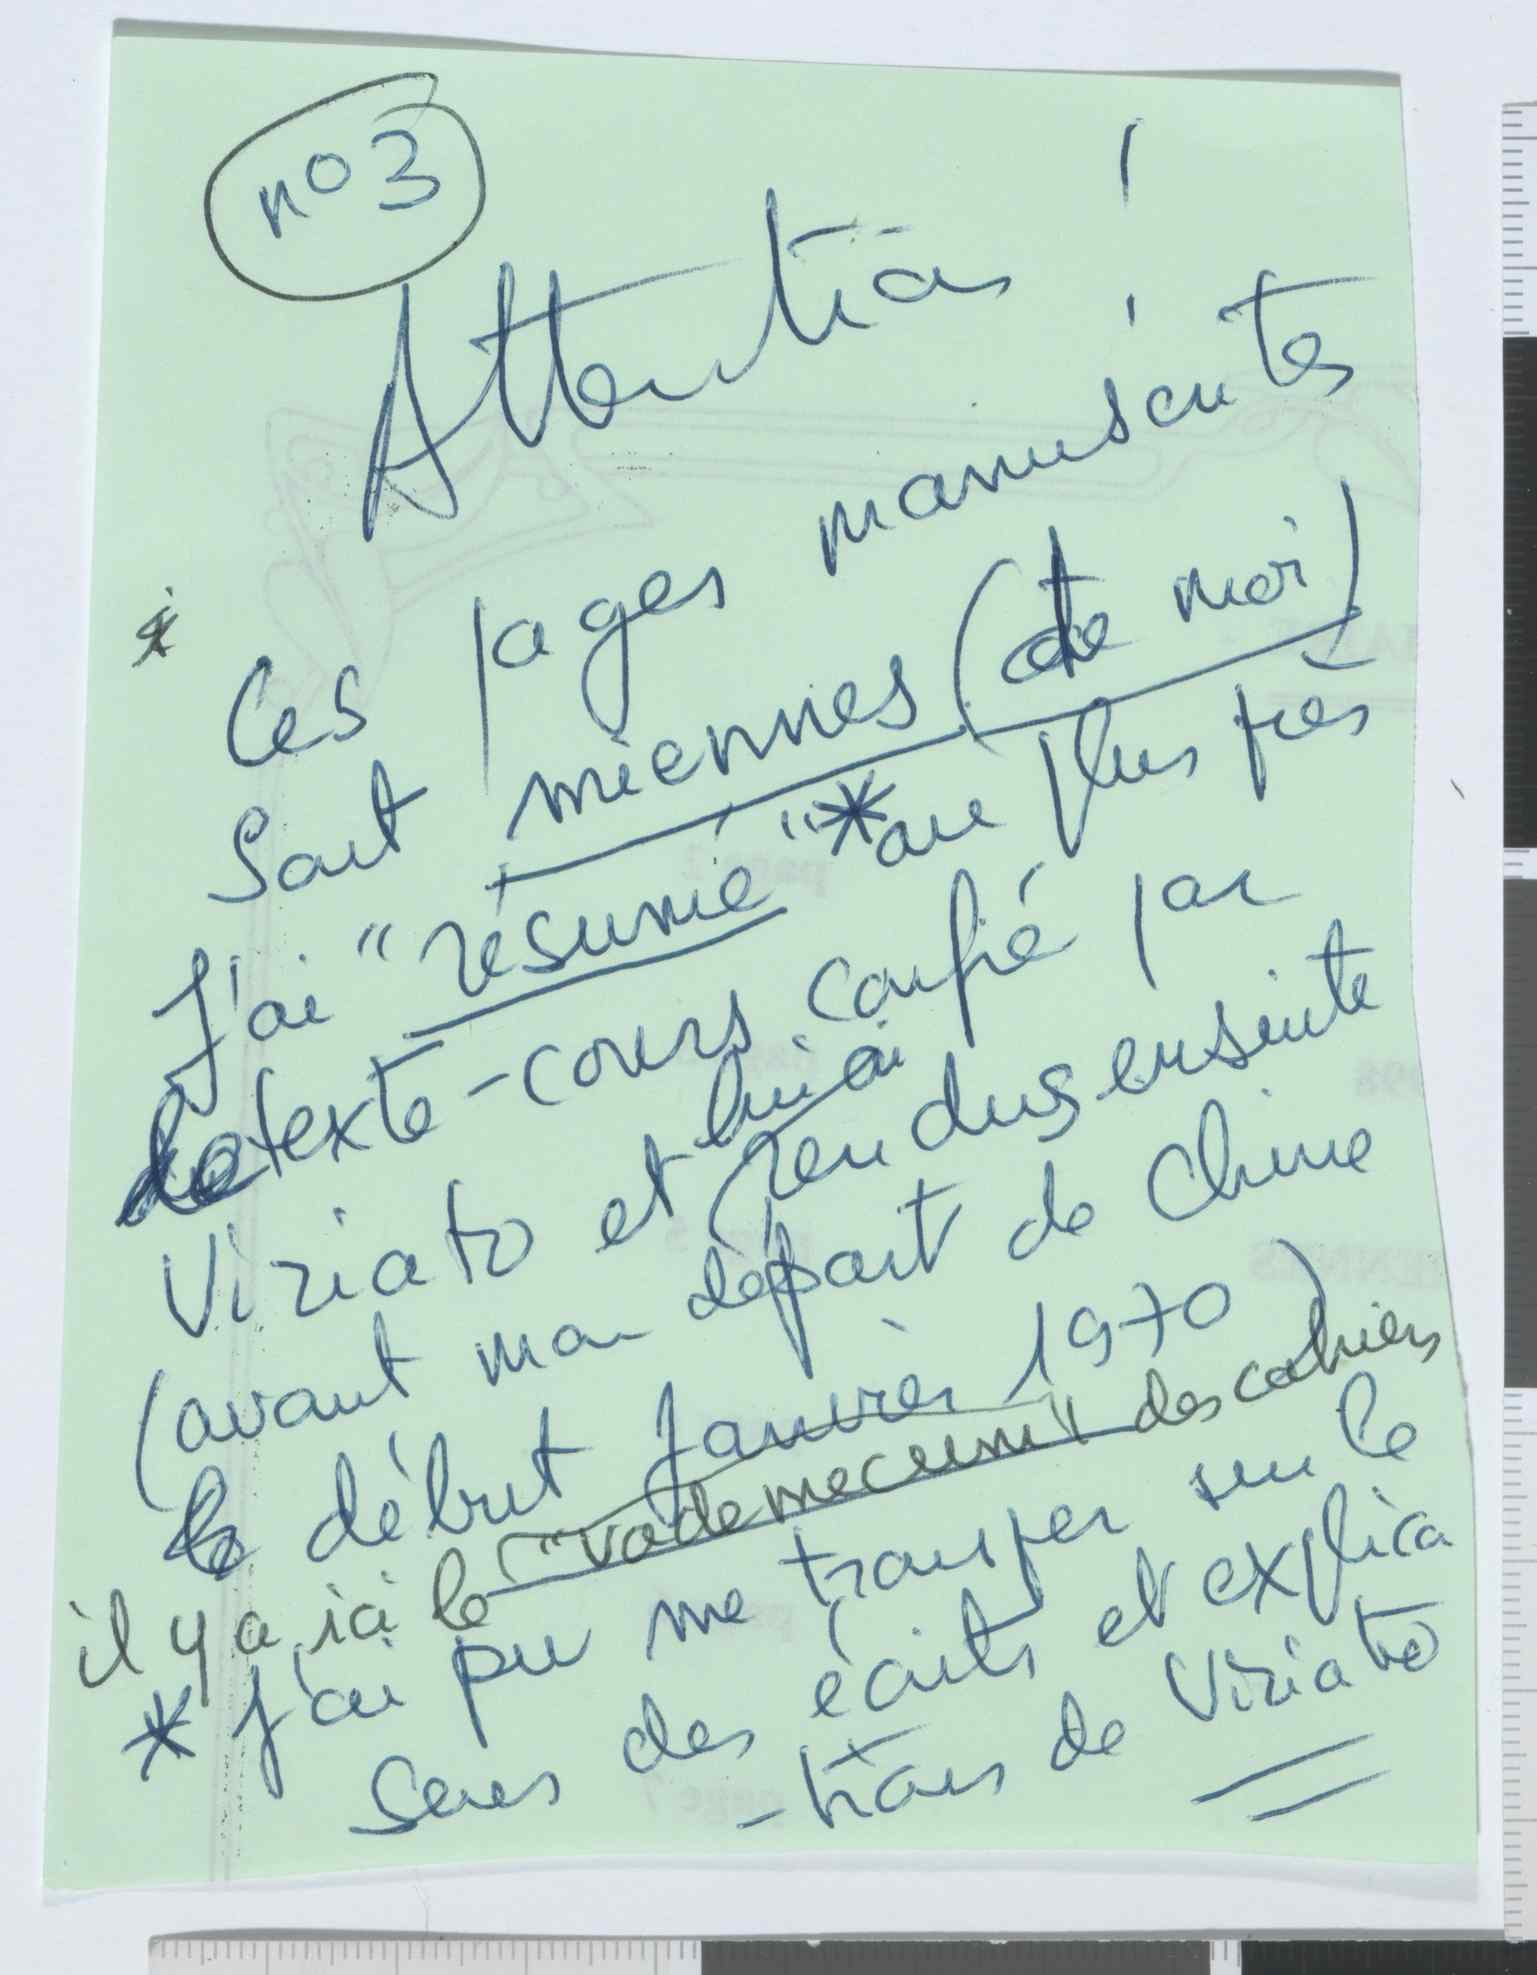 n° 3
Attention !
* Ces pages manuscrites
sont miennes (de moi)
J'ai "résumé"* au plus près
le texte-cours confié par
Viriato et lui ai rendus ensuite
(avant mon départ de Chine
le début Janvier 1970)
il y a ici le "vademecum" des cahiers
* J'ai pu me tromper sur le
sens des écrits et explica
-tions de Viriato